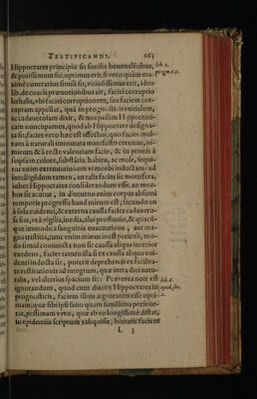 TESTIFICANDI. 165
Hippocrates principio sit similis beneualentibus, lib. 1.
& potissimum sui, optimus erit, si vero quàm ma- progn. t. 5.
ximè contrarius simili sit, vitiosissimus erit, ideo
lib. de coacis prænotionibus ait, faciei corruptio
lethalis, vbi faciei corruptionem, seu faciem cor-
ruptam appellat, quæ in prognosticis vitialem,
ac cadauerosam dixit, & nos passim Hippocrati-
cam nuncupamus, quod ab Hippocrate designa-
ta sit; facies vero hæc est affectus, quo facies mul-
tum à naturali immutata manifesto cernitur, ni-
mirum & à recte valendum facie, & in primis à
seipsa in colore, substantia, habitu, ac mole, sequi-
tur enim extenuationem vi morbi inductam: ad
intelligendum tamen, an talis facies sit mortifera,
iubet Hippocrates considerandum esse, an mor-
bus sit acutus, in diuturno enim corpus absumi
temporis progressu haud mirum est; secundo an
à sola euidenti, & externa caussa facies cadauero-
sa sit, vt à vigilia, inedia, alui profusio, & quacū-
que immodica sanguinis euacuatione, aut ma-
gna tristitia, tunc enim minus inest periculi, mo-
do simul coniuncta non sit caussa aliqua interior
euidens, facies tamen illa si ex caussa aliqua eui-
denti inducta sit, poterit deprehendi ex facilita-
te restitutionis ad integrum, quæ intra diei natu-
ralis, vel alterius spacium fit: Præterea non est lib. 6.
ignorandum, quod cum dixerit Hippocrates in epid. sec.
prognosticis, faciem illius ægrotantis esse opti-
mam, quæ sibi ipsi sano quàm simillima perseue-
rat, pessimam vero, quæ ab eo longissimè distat,
in epidemiis scriptum reliquisse, bonam faciem
L 3